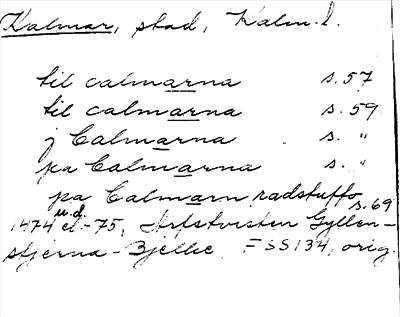 Kalmar, stad, Kalm. l.
til calmarna s. 57
til calmarna s. 59
j Calmarna . s. "
pa Calmarna s. "
pa Calmarn radstuffo s. 69
u.d.
1474 el.-75, Arfstvisten Gyllen-
stjerna - Bjelke. FSS 134, orig.